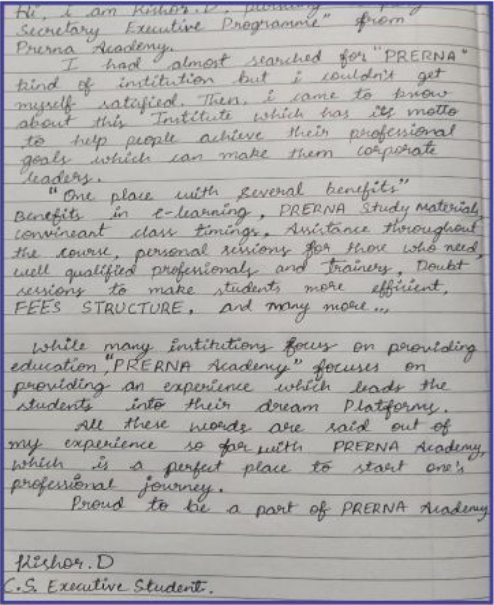 Hi, i am Kishor.D, pursuing
Secretary Executive Programme" from
Prerna Academy.
I had almost searched for "PRERNA"
kind of institution but i couldn't get
myself satisfied. Then, i came to know
about this Institute which has its motto
to help people achieve their professional
goals which can make them corporate
leaders.
"One place with several benefits"
Benefits in e-learning, PRERNA Study Materials,
convineant class timings, Assistance throughout
the course, personal sessions for those who need,
well qualified professionals and trainers, Doubt
sessions to make students more efficient,
FEES STRUCTURE, and many more...
While many institutions focus on providing
education, "PRERNA Academy" focuses on
providing an experience which leads the
students into their dream Platforms.
All these words are said out of
my experience so far with PRERNA Academy,
which is a perfect place to start one's
professional journey.
Proud to be a part of PRERNA Academy
Kishor.D
C.S. Executive Student.